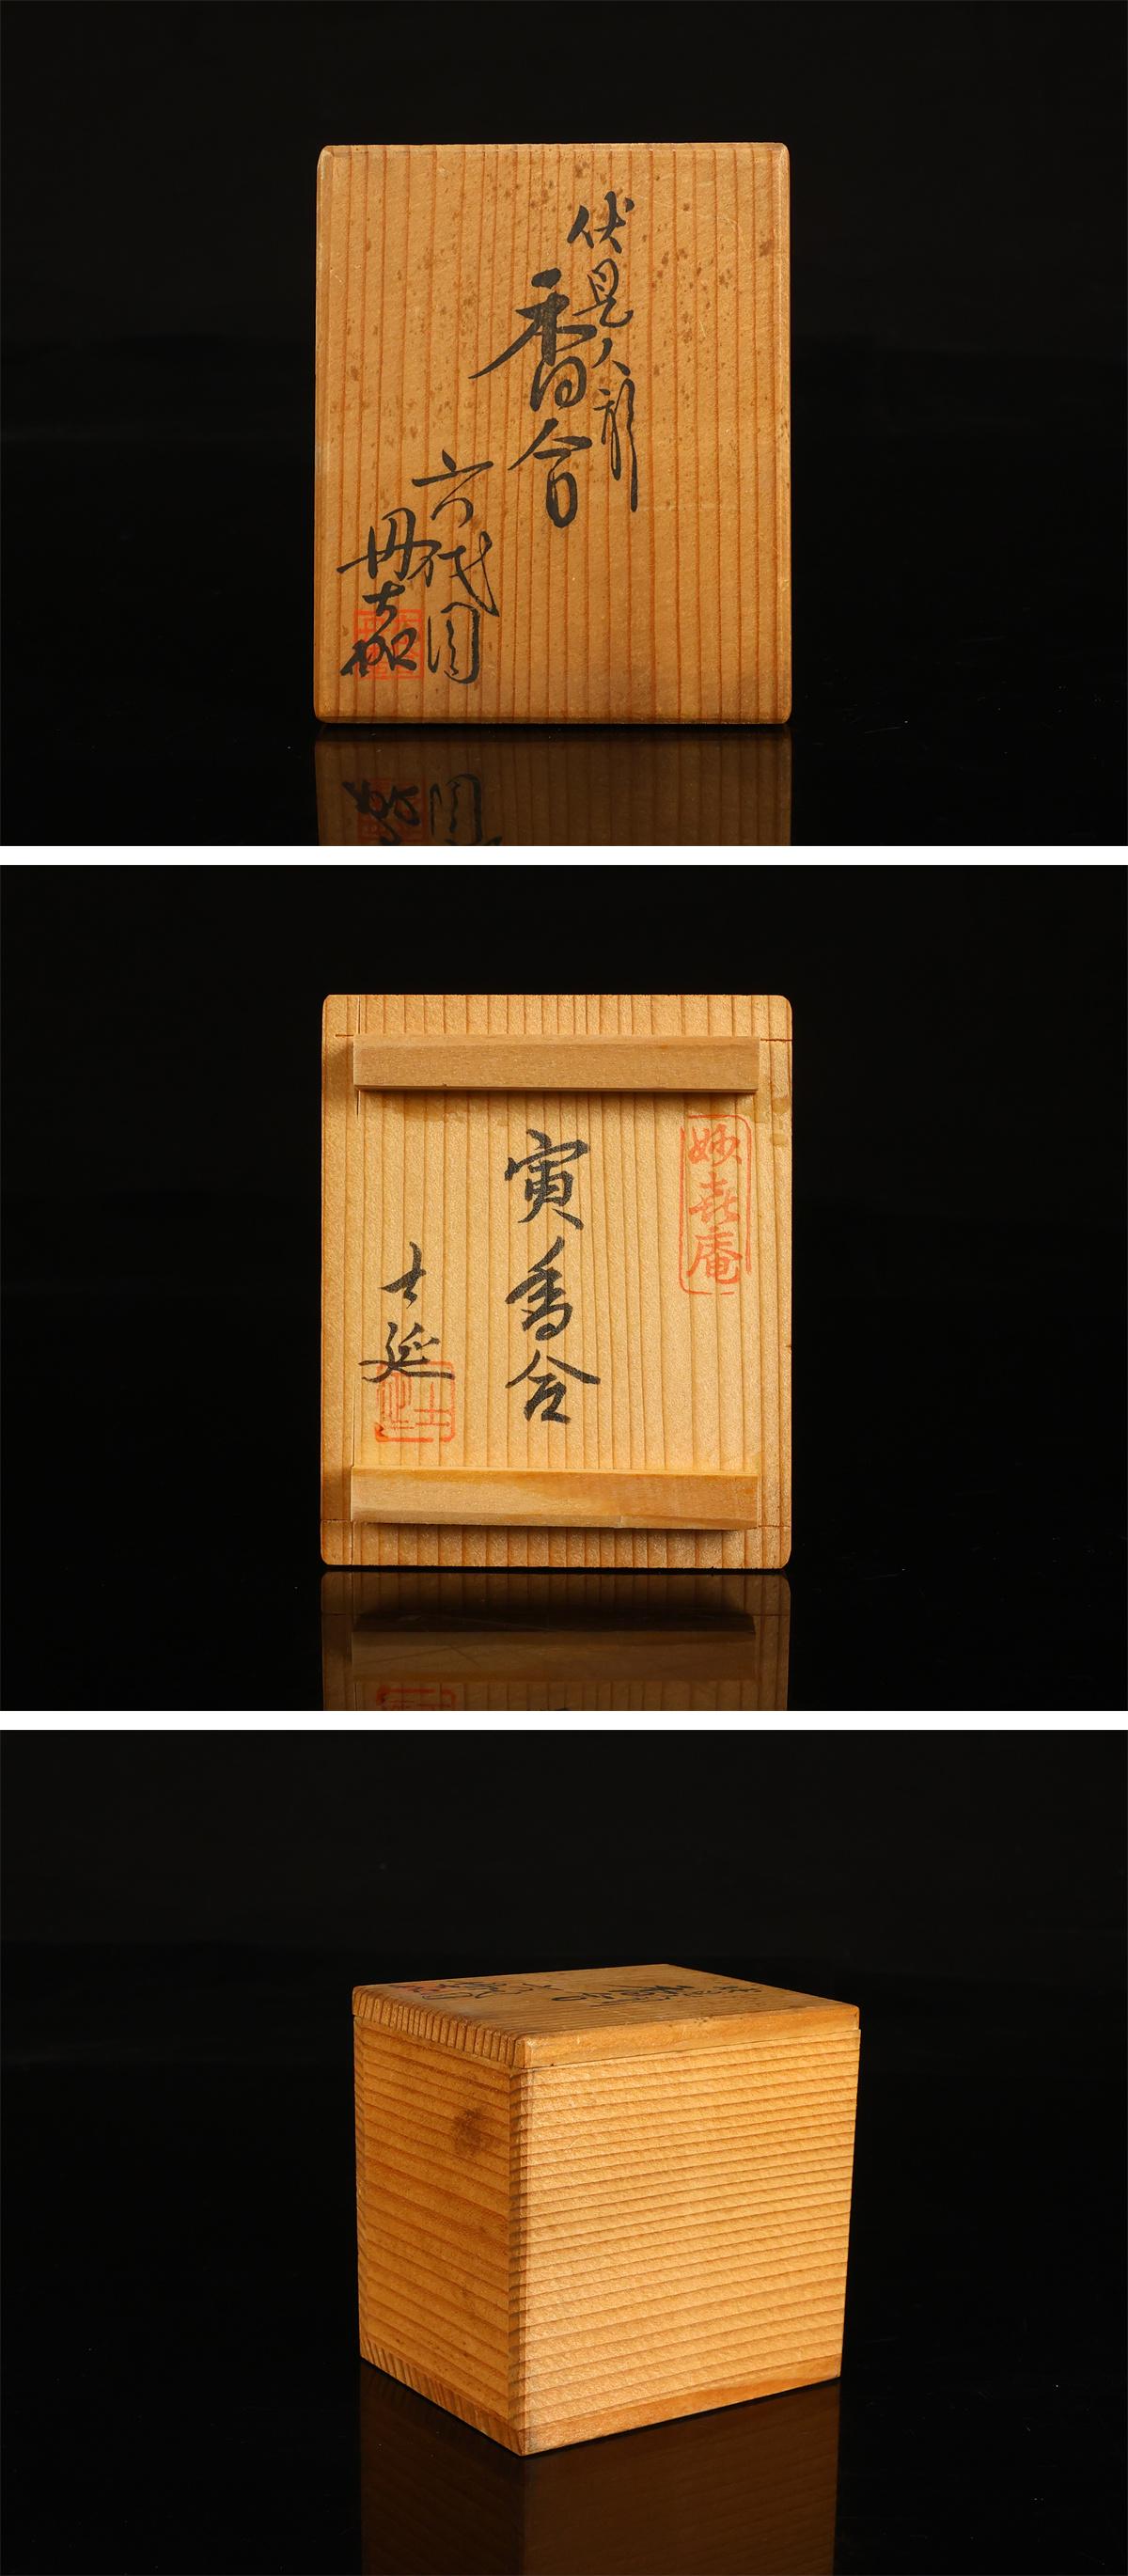 伏見人形
香合
六代目
丹嘉
妙喜庵
寅香合
士延